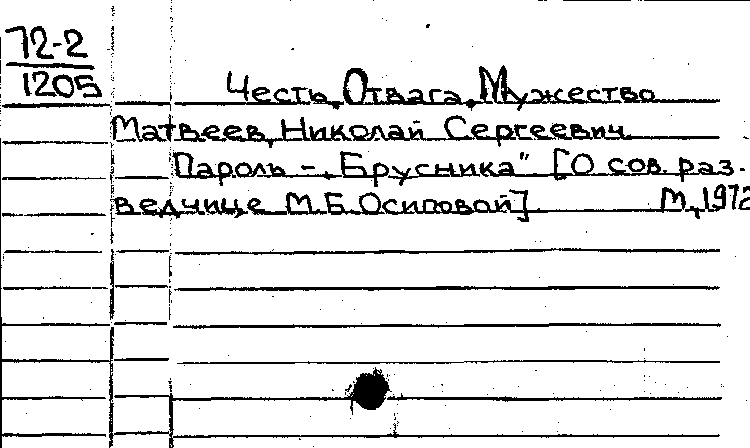 72-2
1205
Честь. Отвага. Мужество
Матвеев, Николай Сергеевич
Пароль - „Брусника" [О сов. раз-
ведчице М.Б. Осиповой] М., 1972